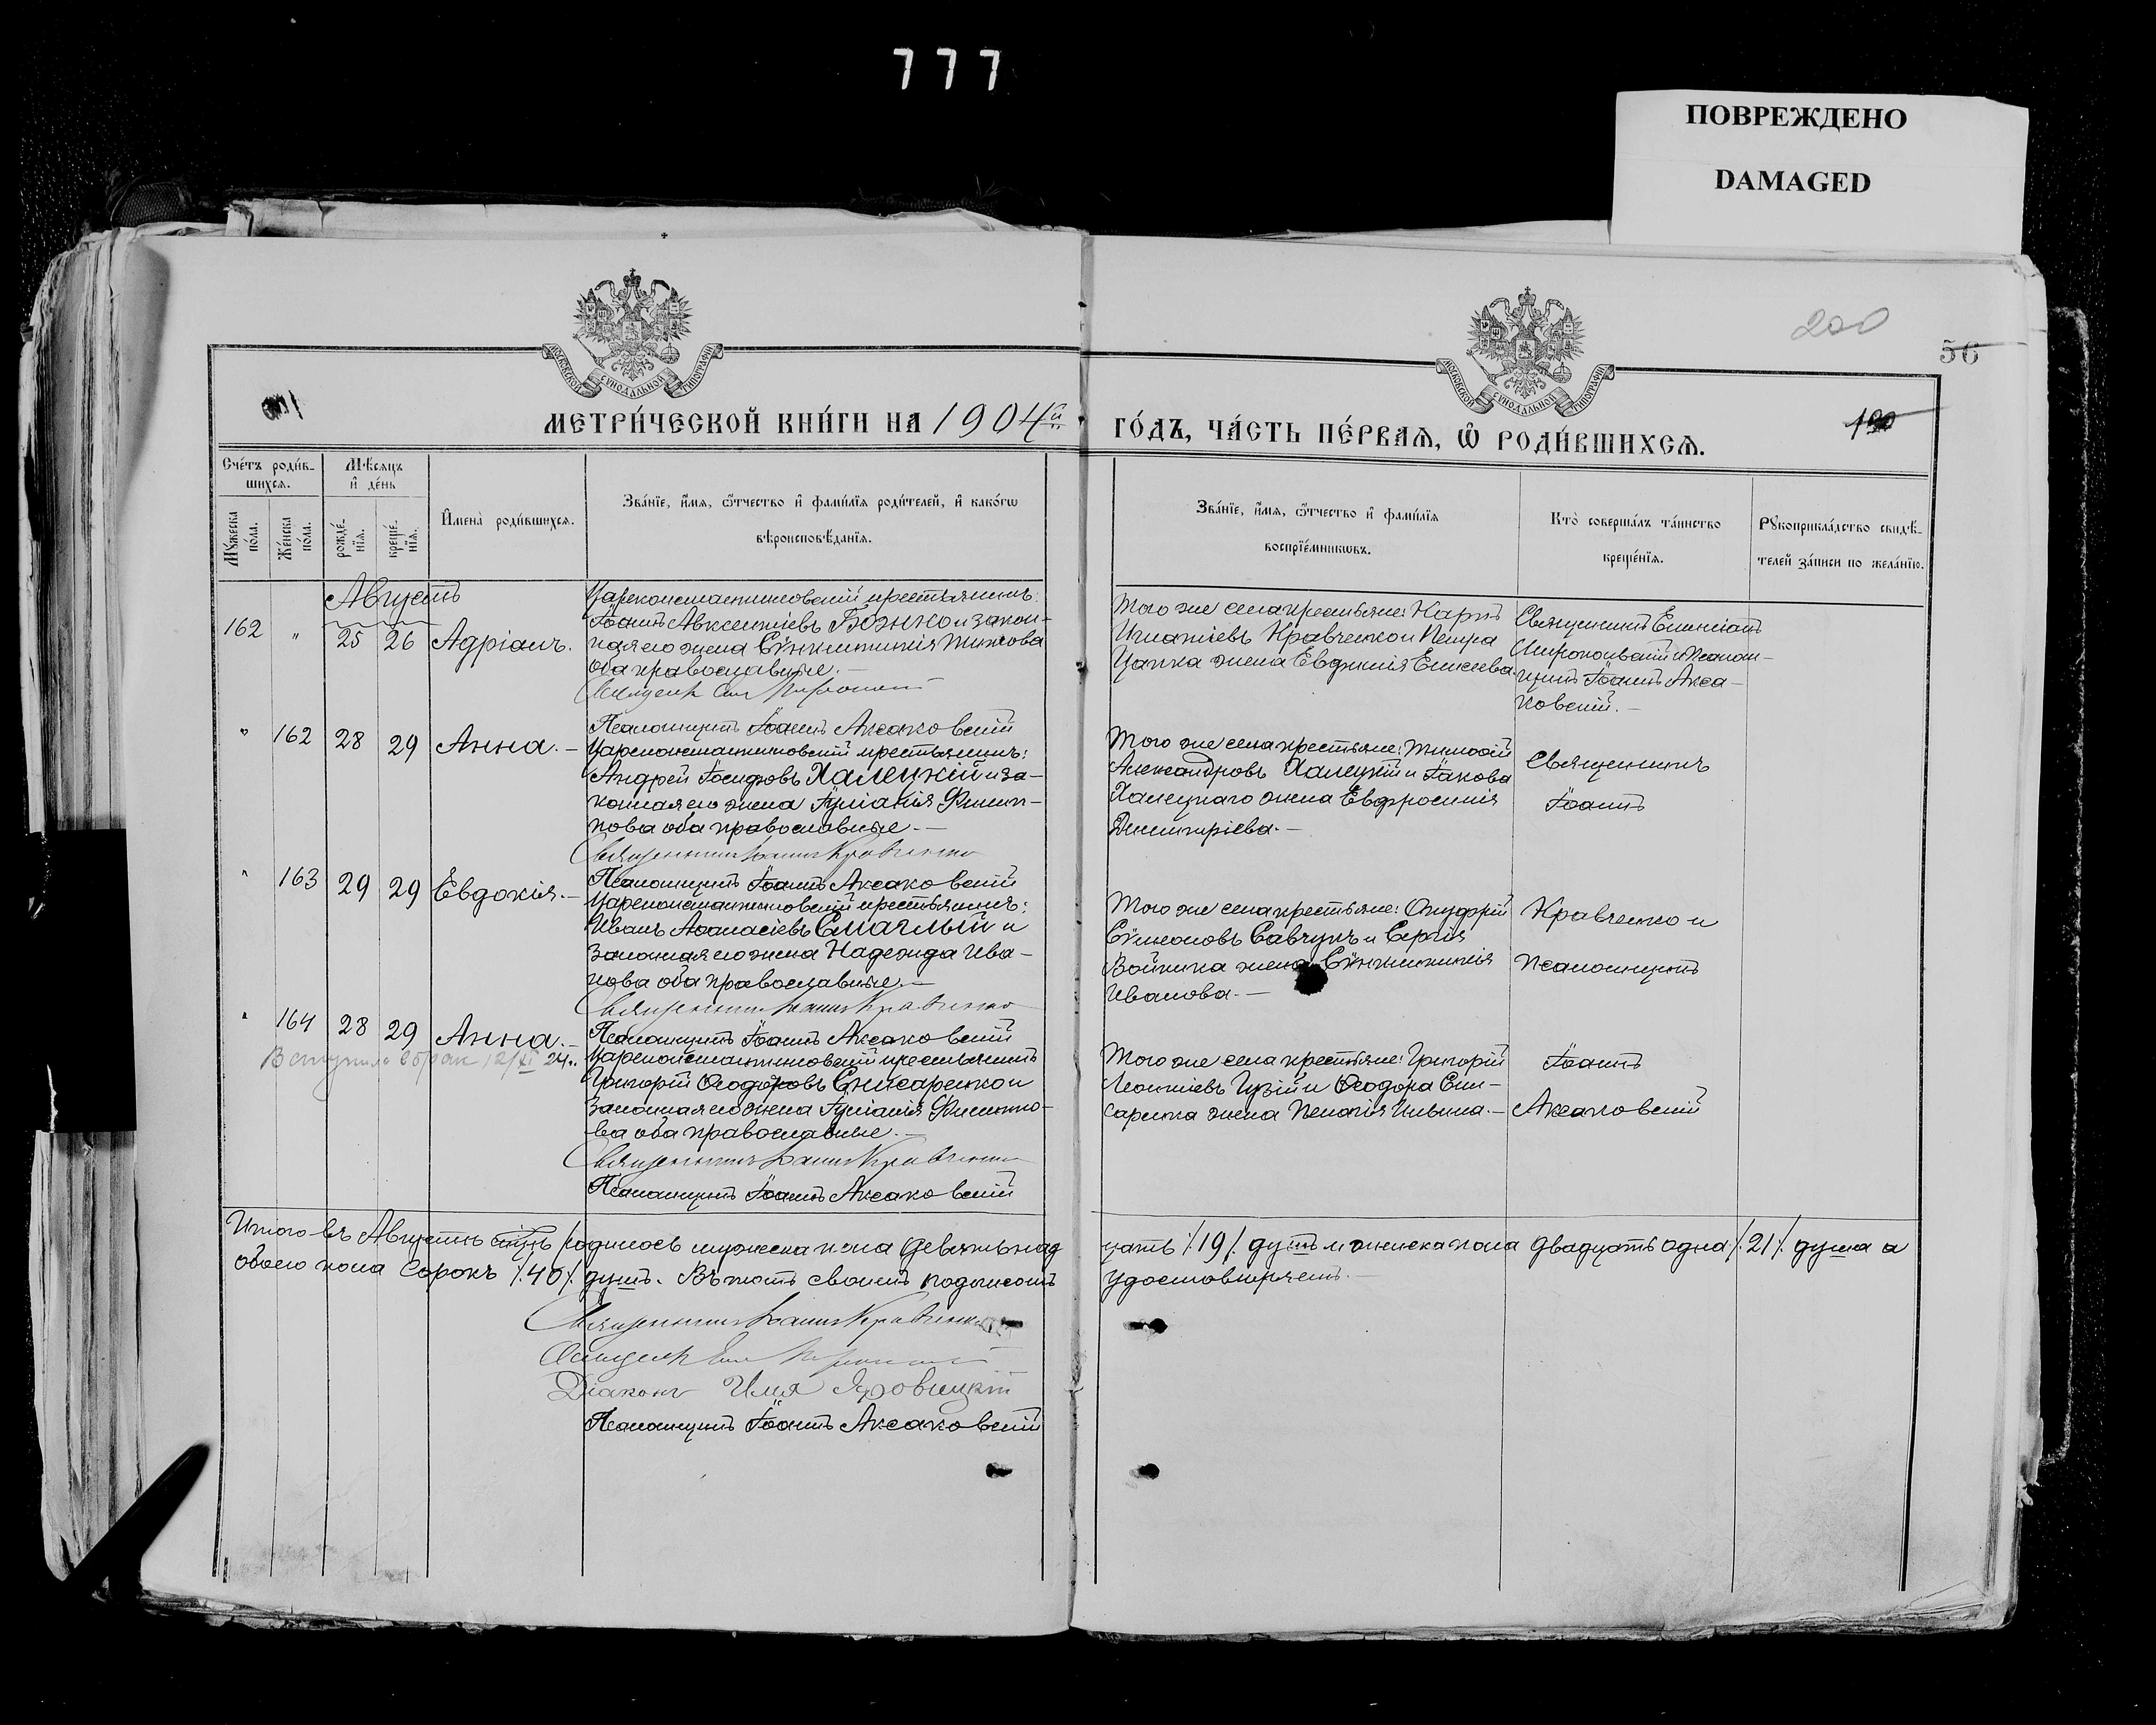 777
ПОВРЕЖДЕНО
DAMAGED
МОСКОВСКОЙ СѴНОДАЛЬНОЙ ТИПОГРАФІИ
МОСКОВСКОЙ СѴНОДАЛЬНОЙ ТИПОГРАФІИ
200
56
190
МЕТРИ́ЧЕСКОЙ КНИ́ГИ НА 1904й
ГО́ДЪ, ЧА́СТЬ ПЕ́РВАѦ, Ѡ҆ РОДИ́ВШИХСѦ.
Сче́тъ роди́в-
шихсѧ.
Мѣ́сѧцъ
и҆ де́нь
Мꙋ́жеска
по́ла.
Же́нска
по́ла.
рожде́-
нїѧ.
креще́-
нїѧ.
И҆мена̀ роди́вшихсѧ.
Зва́нїе, и҆́мѧ, ѻ҆́тчество и҆ фами́лїѧ роди́телей, и҆ како́гѡ
вѣроисповѣ́данїѧ.
Зва́нїе, и҆́мѧ, ѻ҆́тчество и҆ фами́лїѧ
воспрїе́мникѡвъ.
Кто̀ соверша́лъ та́инство
креще́нїѧ.
Рꙋкоприкла́дство свидѣ́-
телей за́писи по жела́нїю.
Августъ
162 " 25 26 Адріанъ.
Цареконстантиновскій крестьянинъ:
Іоаннъ Авксентіевъ Божко и закон-
ная его жена Сѵнклитикія Титова
оба православные.-
Того же села крестьяне: Карпъ
Игнатіевъ Кравченко и Петра
Цапка жена Евдокія Елисеева.
Священникъ
и Псалом-
щикъ Іоаннъ Акса-
ковскій.-
Псаломщикъ Іоаннъ Аксаковскій
" 162 28 29 Анна.-
Цареконстантиновскій крестьянинъ:
Андрей Іосифовъ Халецкій и за-
конная его жена Іуліанія Филип-
пова оба православные.-
Священникъ Іоаннъ Кравченко
Псаломщикъ Іоаннъ Аксаковскій
Того же села крестьяне: Тимоѳей
Александровъ Халецкій и Іакова
Халецкаго жена Евфросинія
Димитріева.-
Священникъ
Іоаннъ
" 163 29 29 Евдокія.-
Цареконстантиновскій крестьянинъ:
Иванъ Аѳанасіевъ Смаглый и
законная его жена Надежда Ива-
нова оба православные.-
Священникъ Іоаннъ Кравченко
Псаломщикъ Іоаннъ Аксаковскій
Того же села крестьяне: Онуфрій
Сѵмеоновъ Савчукъ и Сергія
Войтика жена Сѵнклитикія
Иванова.-
Кравченко и
псаломщикъ
" 164 28 29 Анна.-
Вступила в брак 12/XI 24
Цареконстантиновскій крестьянинъ
Григорій Ѳеодоровъ Снисаренко и
законная его жена Іуліанія Филиппо-
ва оба православные.-
Священникъ Іоаннъ Кравченко
Псаломщикъ Іоаннъ Аксаковскій
Того же села крестьяне: Григорій
Леонтіевъ Гузій и Ѳеодора Сни-
саренка жена Пелагія Ильина.-
Іоаннъ
Аксаковскій
Итого въ Августѣ родилось мужеска пола девятьнад
цать /:19/: душъ и женска пола двадцать одна /:21/: душа а
обоего пола сорокъ /:40/: душъ. Въ чемъ своимъ подписомъ
удостовѣряемъ.-
Священникъ Іоаннъ Кравченко
Діаконъ Илія Яровицкій
Псаломщикъ Іоаннъ Аксаковскій